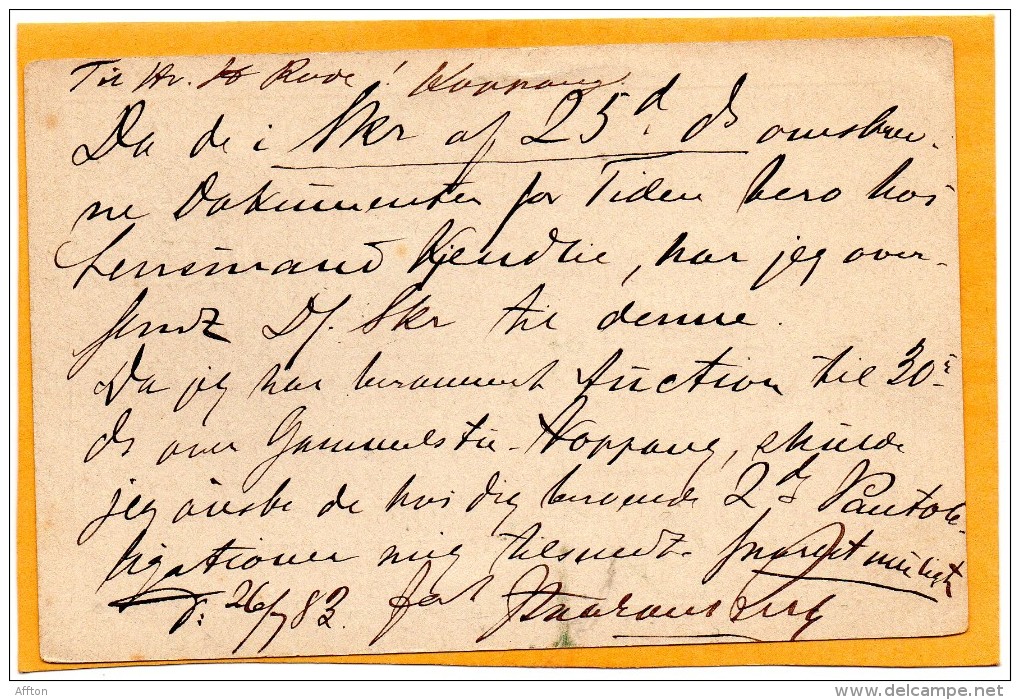 Til Hr. H Rode! Koppang.
Da de i Skr af 25d. ds omskrev-
ne Dokumenter for Tiden bero hos
Lensmand Kjendlie, har jeg over-
sendt Ds. Skr til denne.
Da jeg har berammet Auction til 30te
ds over Gammelstu-Koppang, skulde
jeg ønske de hos dig beroende 2de Pantob-
ligationer mig tilsendt snarest muligt
d: 26/7 83.
Affton
delcampe.net